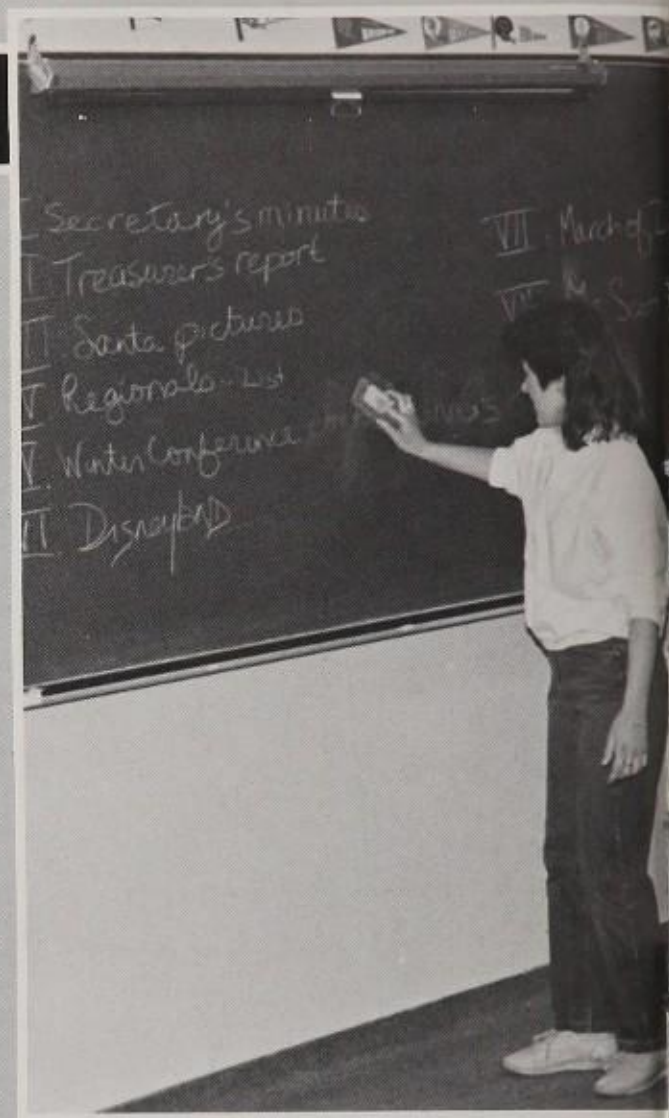 I Secretary's minutes
I Treasurer's report
II Santa pictures
V Regionals - List
V. Winter Conference
VI Disneyland
VII. March of
VIII